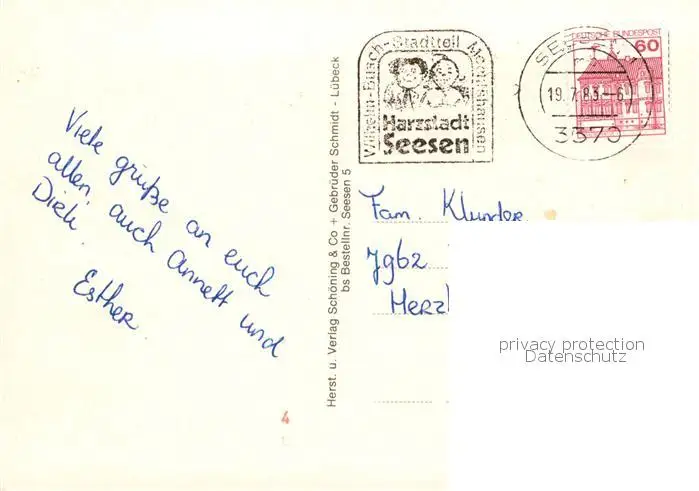 Viele grüße an euch
allen, auch Annett und
Dirk.
Esther
4
Herst. u. Verlag Schöning & Co + Gebrüder Schmidt - Lübeck
bs Bestellnr. Seesen 5
Wilhelm-Busch-Stadtteil Mechtshausen
Harzstadt
Seesen
19.7.83.-6
3370
DEUTSCHE BUNDESPOST
60
Fam. Klunder
privacy protection
Datenschutz